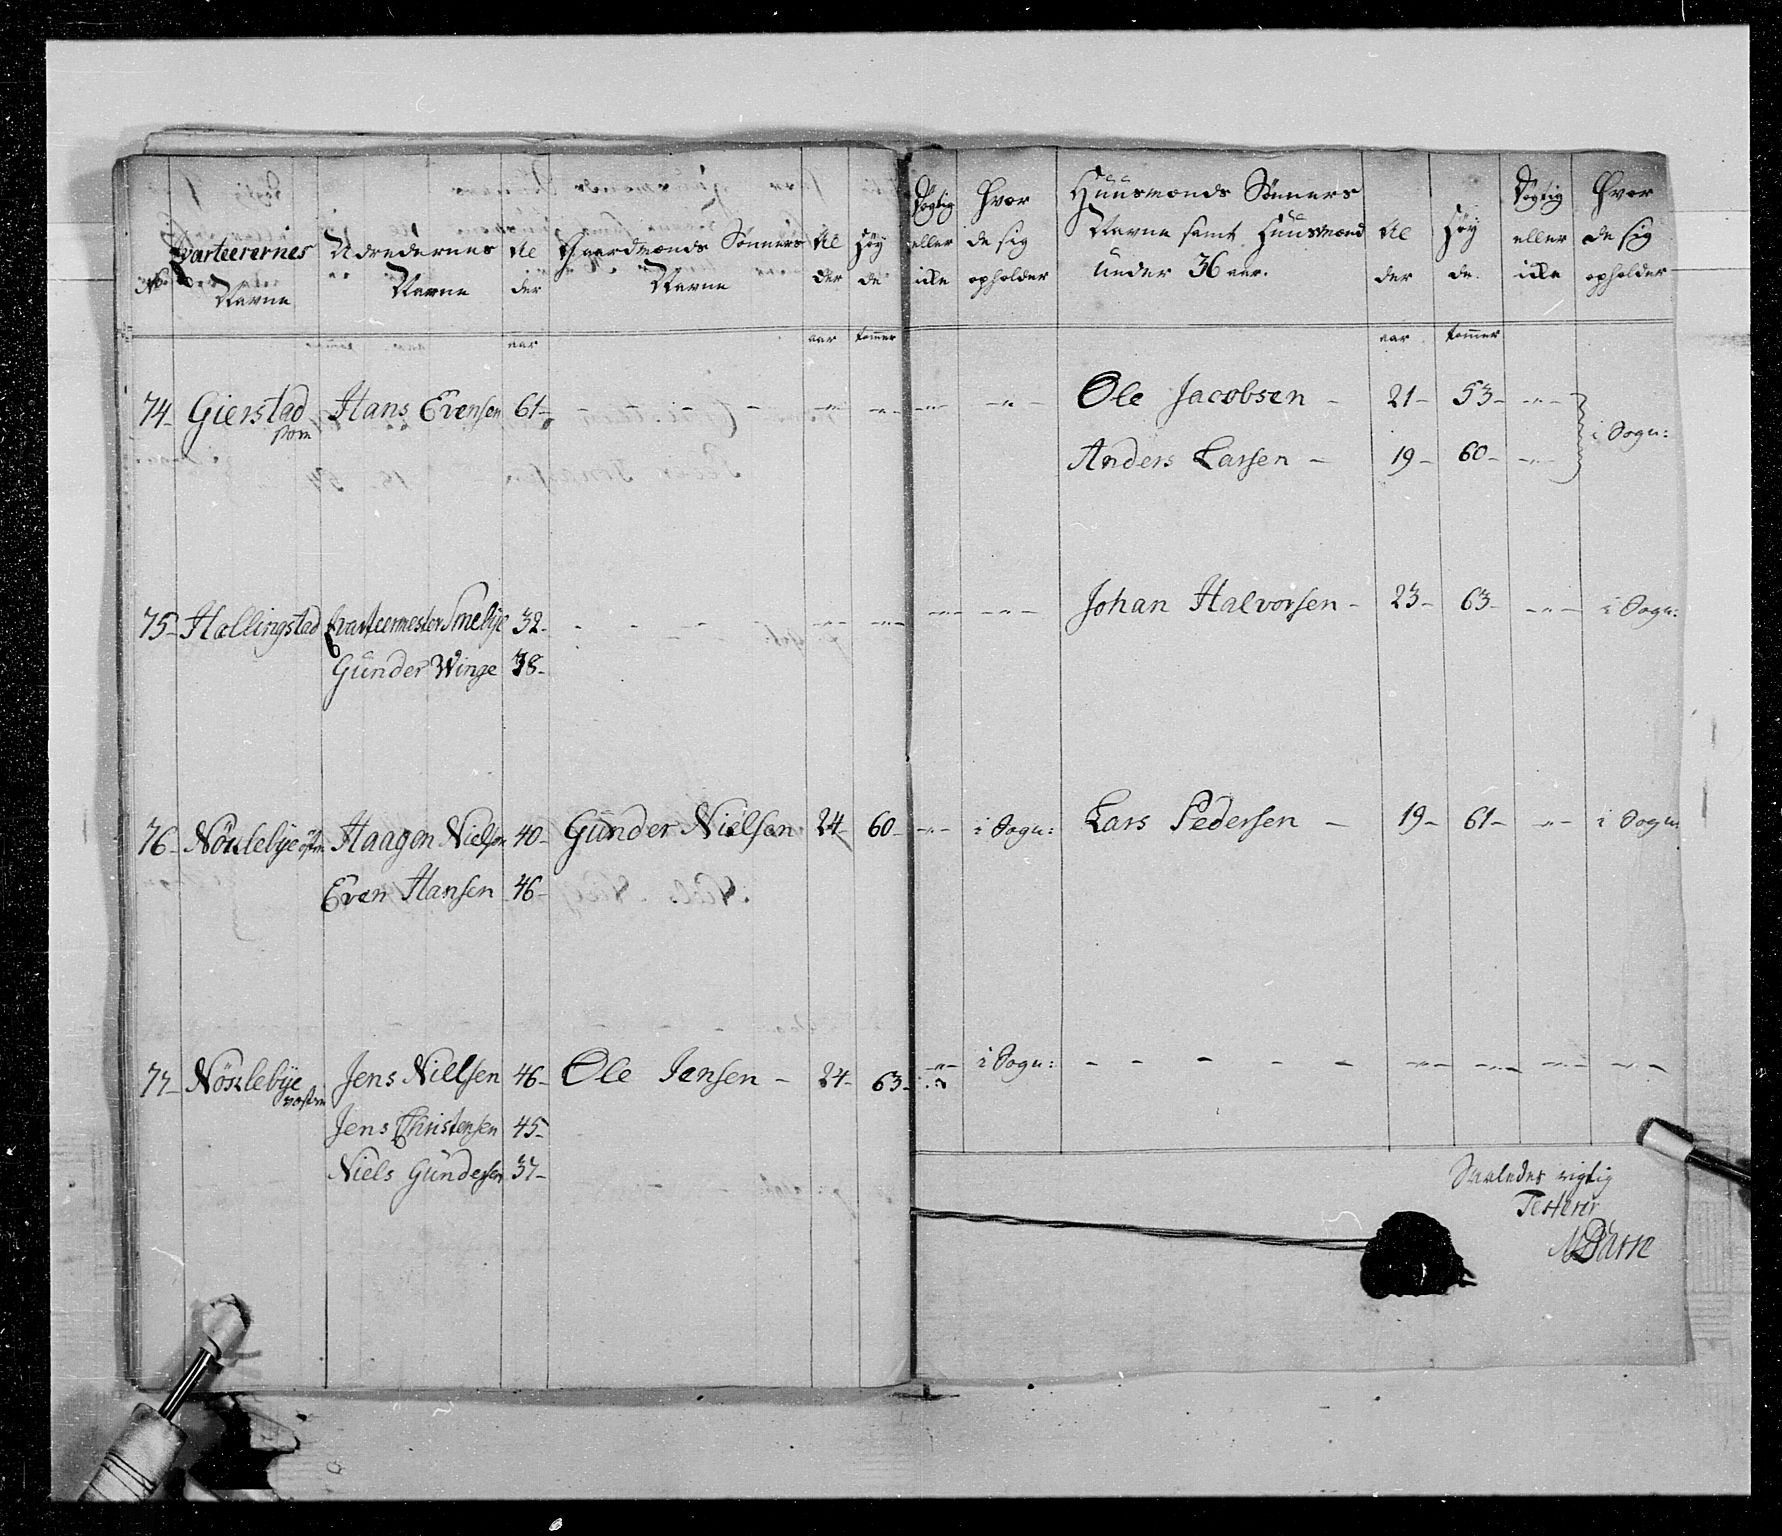 No. Qvarteerernes Navne | Udredernes Navne | Al der | Gaardmænds Sønners Navne | Al der | Høy de | Dygtig eller ikke | Hvor de sig opholder | Huusmænds Sønners Navne samt Huusmænd under 36 aar. | Al der | Høy de. | Dygtig eller ikke | Hvor de sig opholder
aar | aar | tommer | aar | tommer
74- Gierstad | Hans Evensen | 61- | - - - - | -"- | -"- | -"- | -"- | Ole Jacobsen - | 21- | 53- | -"- | i Sogn:
Anders Larsen - | 19- | 60- | -"-
75- Hallingstad | Qvarteermester Smebye | 32- | - - - - | -"- | -"- | -"- | -"- | Johan Halvorsen - | 23- | 63- | -"- | i Sogn:
Gunder Winge | 38-
76- Nøslebye østre | Haagen Nielsen | 40- | Gunder Nielsen | 24- | 60- | -"- | i Sogn: | Lars Pedersen - | 19- | 61- | -"- | i Sogn:
Even Hansen | 46-
77- Nøslebye vestre | Jens Nielsen | 46- | Ole Jensen - | 24- | 63- | -"- | i Sogn: | - - - - - | -"- | -"- | -"- | -"-
Jens Christensen | 45-
Niels Gundersen | 37-
Saaledes rigtig
Testerer